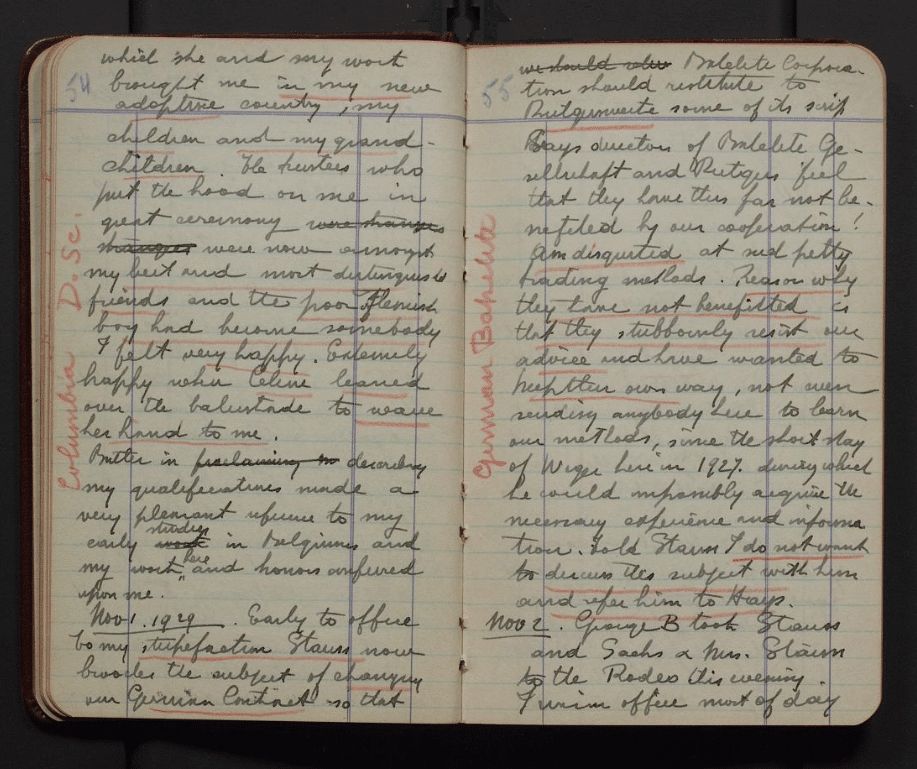 54
which she and my work
brought me in my new
adoptive country, my
children and my grand-
children. The trustees who
put the hood on me in
great ceremony were strangers
strangers were now amongst
my best and most distinguished
friends and the poor Flemish
boy had become somebody
I felt very happy. Extremely
happy when Celine leaned
over the balustrade to wave
her hand to me.
Butler in proclaiming describing
my qualifications made a
very pleasant reference to my
studies
early work in Belgium and
here
my work and honors conferred
upon me.
Nov 1. 1929. Early to office
to my stupefaction Stauss now
broaches the subject of changing
our German Contract so that
Columbia D. Sc.
55
we should Bakelite Corpora-
tion should restitute to
Rutgerswerke some of its scrip
Says directors of Bakelite Ge-
sellschaft and Rutgers feel
that they have thus far not be-
nefited by our cooperation!
Am disgusted at such petty
trading methods. Reason why
they have not benefitted is
that they stubbornly resist our
advice and have wanted to
keep their own way, not even
sending anybody here to learn
our methods, since the short stay
of Wege here in 1927. during which
he could impossibly acquire the
necessary experience and informa
tion. Told Stauss I do not want
to discuss this subject with him
and refer him to Hays.
Nov 2. George B took Stauss
and Sachs & Mrs. Stauss
to the Rodeo this evening.
I was in office most of day
German Bakelite